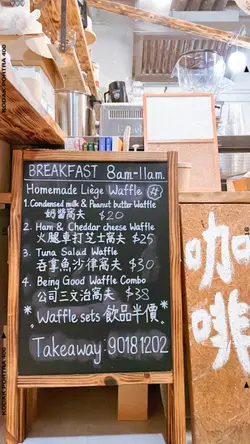 BREAKFAST 8am-11am.
Homemade Liège Waffle
1. Condensed milk & Peanut butter Waffle
奶醬窩夫 $20
2. Ham & Cheddar cheese Waffle
火腿車打芝士窩夫 $25
3. Tuna Salad Waffle
吞拿魚沙律窩夫 $30
4. Being Good Waffle Combo
公司三文治窩夫 $38
*Waffle sets 飲品半價*
Takeaway: 9018 1202
咖啡
KODAK PORTRA 400